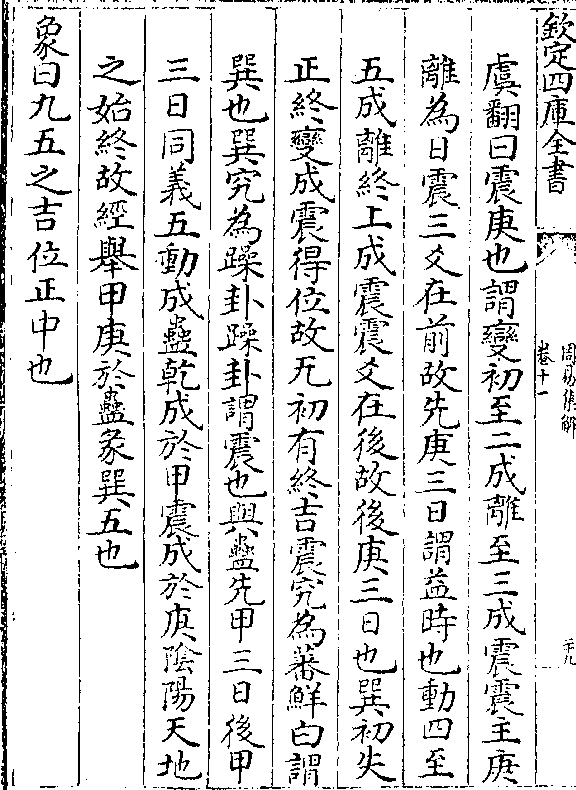 欽定四庫全書
周易集解
卷十一
二十九
虞翻曰震庚也謂變初至二成離至三成震震主庚
離為日震三爻在前故先庚三日謂益時也動四至
五成離終上成震震爻在後故後庚三日也巽初失
正終變成震得位故无初有終吉震究為蕃鮮白謂
巽也巽究為躁卦躁卦謂震也與蠱先甲三日後甲
三日同義五動成蠱乾成於甲震成於庚陰陽天地
之始終故經舉甲庚於蠱彖巽五也
象曰九五之吉位正中也